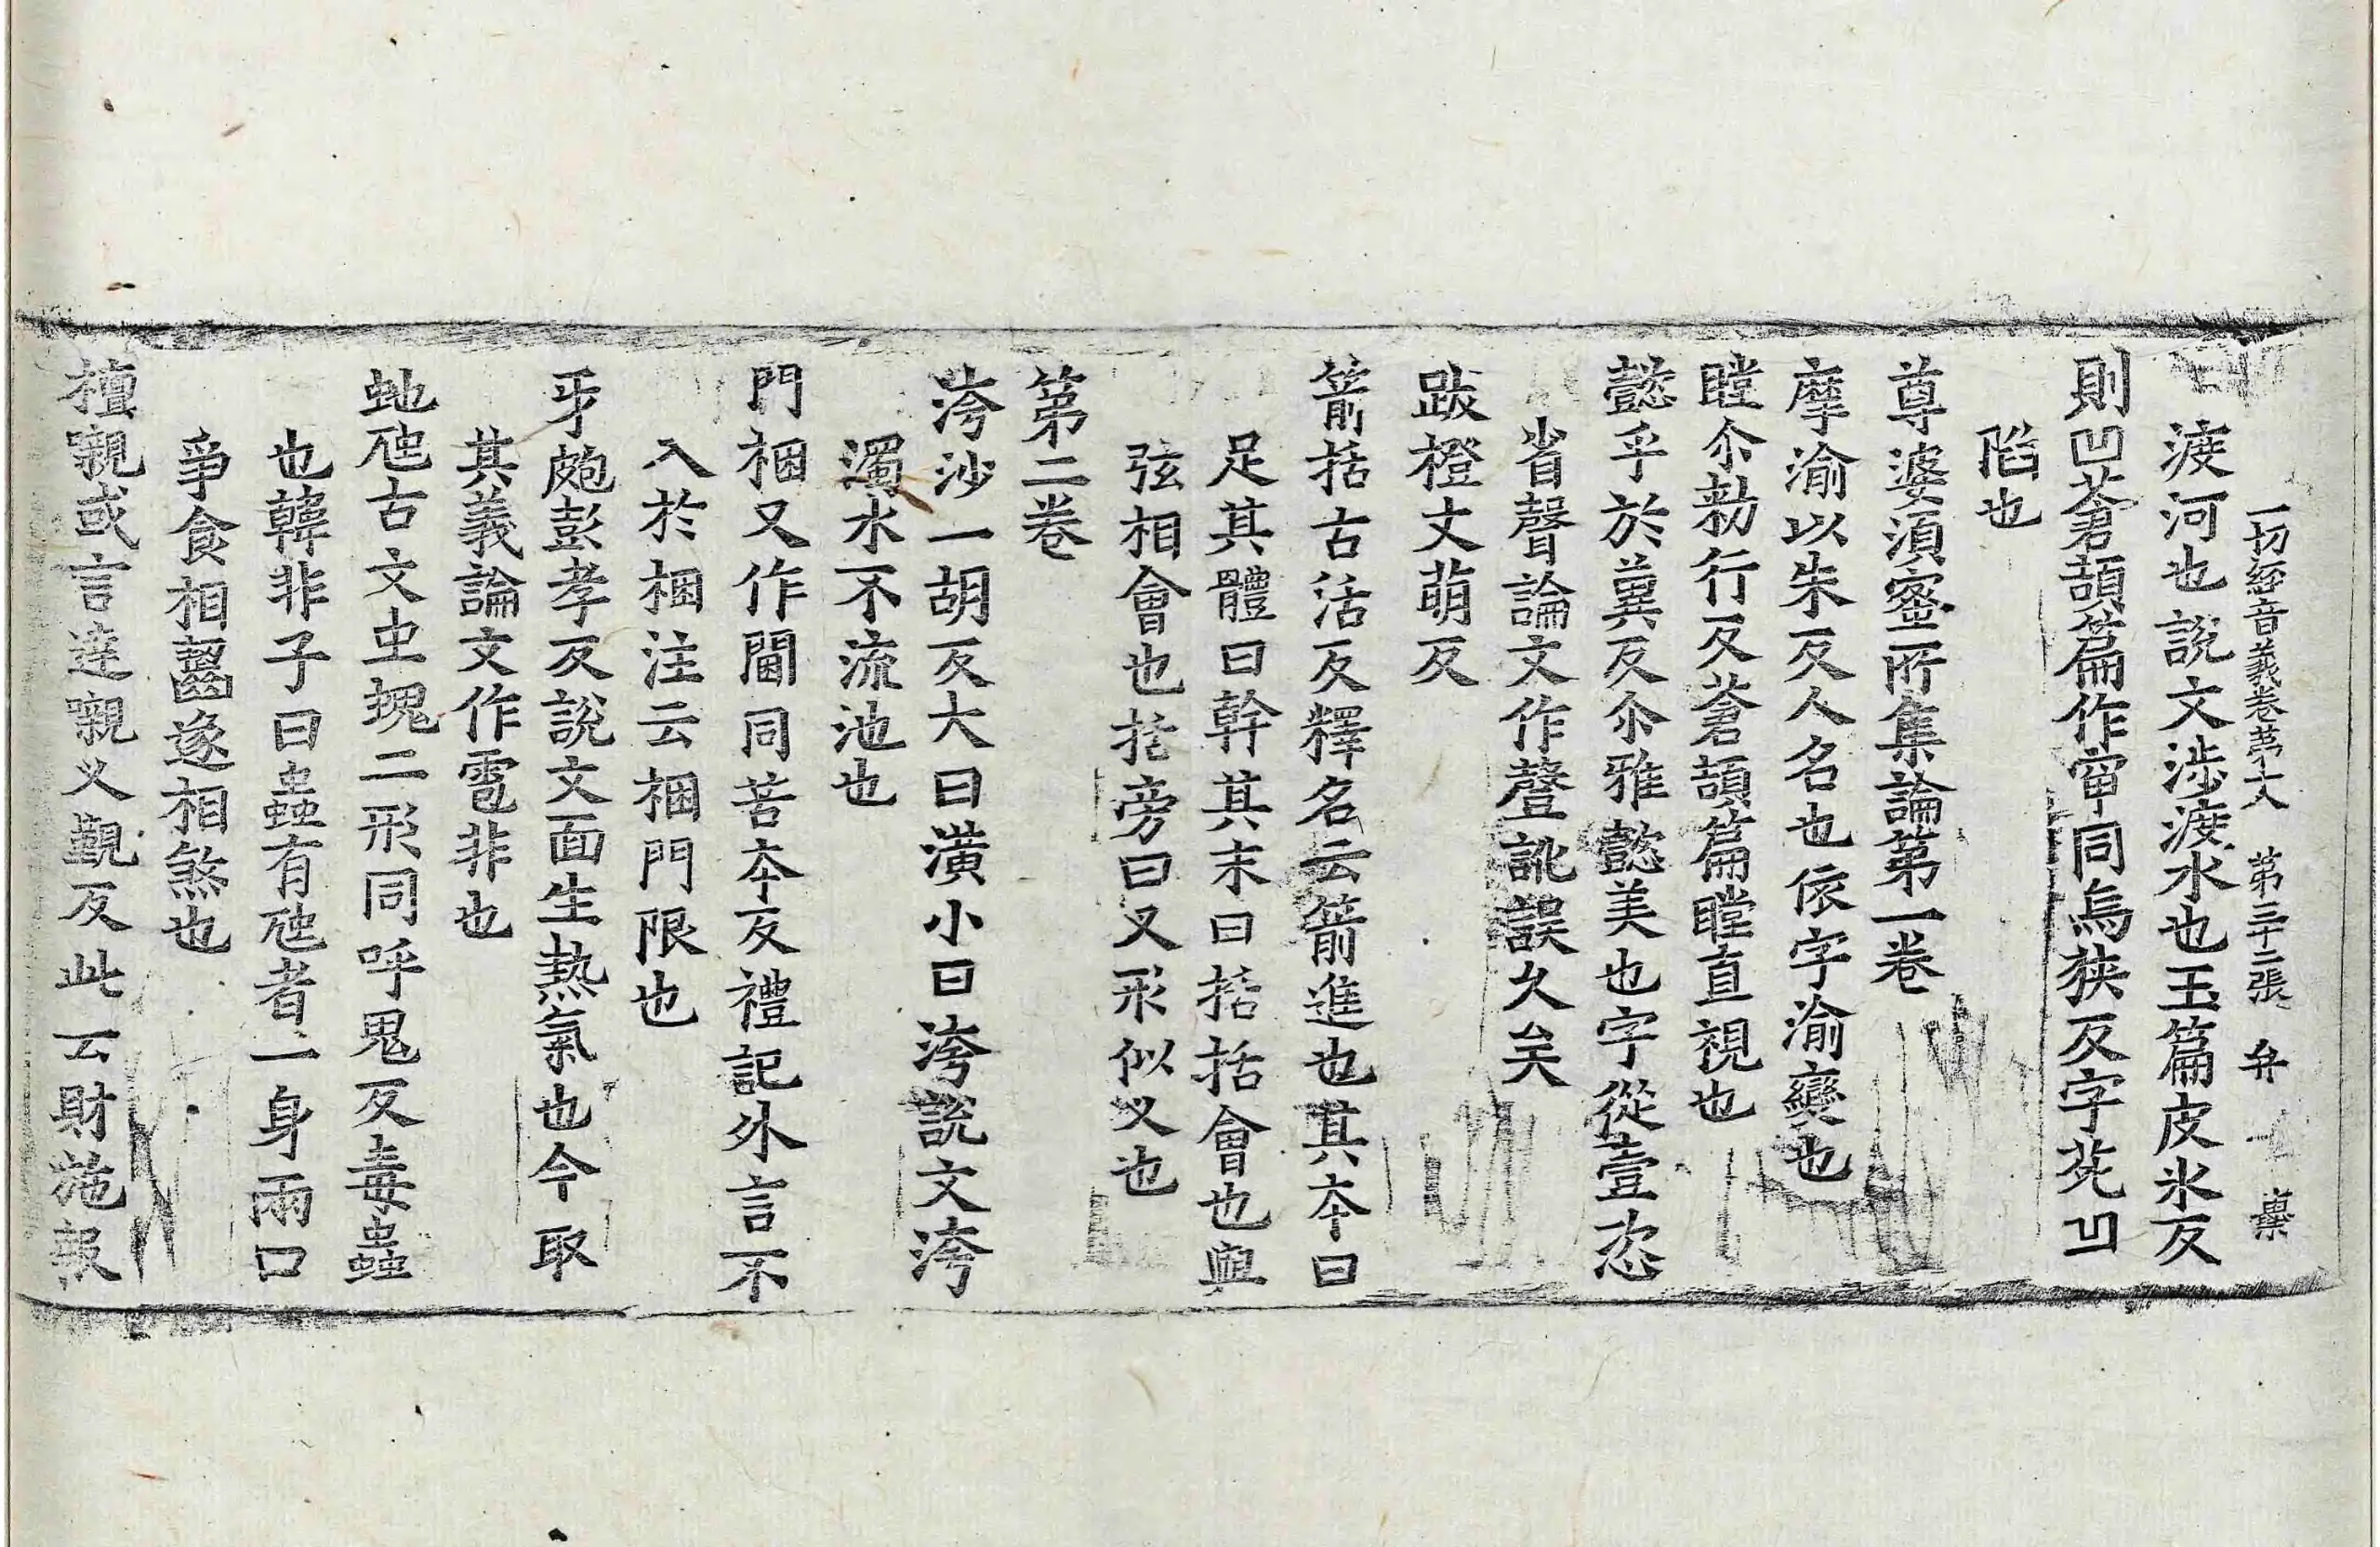 一切經音義卷第十八 第三十二張 弁
渡河也說文涉渡水也玉篇皮氷反
則凹蒼頡篇作窅同烏狹反字苑凹
陷也
尊婆須蜜所集論第一卷
摩渝以朱反人名也依字渝變也
瞠尒勑行反蒼頡篇瞠直視也
懿乎於冀反尒雅懿美也字從壹恣
省聲論文作聲訛誤久矣
跋橙丈萌反
箭括古活反釋名云箭進也其夲曰
足其體曰幹其末曰括括會也與
弦相會也括旁曰叉形似叉也
第二卷
洿沙一胡反大曰潢小曰洿說文洿
濁水不流池也
門梱又作閫同苦夲反禮記外言不
入於梱注云梱門限也
牙皰彭孝反說文面生熱氣也今取
其義論文作雹非也
虵虺古文虫䗏二形同呼鬼反毒蟲
也韓非子曰蟲有虺者一身兩口
爭食相齧遂相煞也
檀嚫或言達嚫叉覲反此云財施報